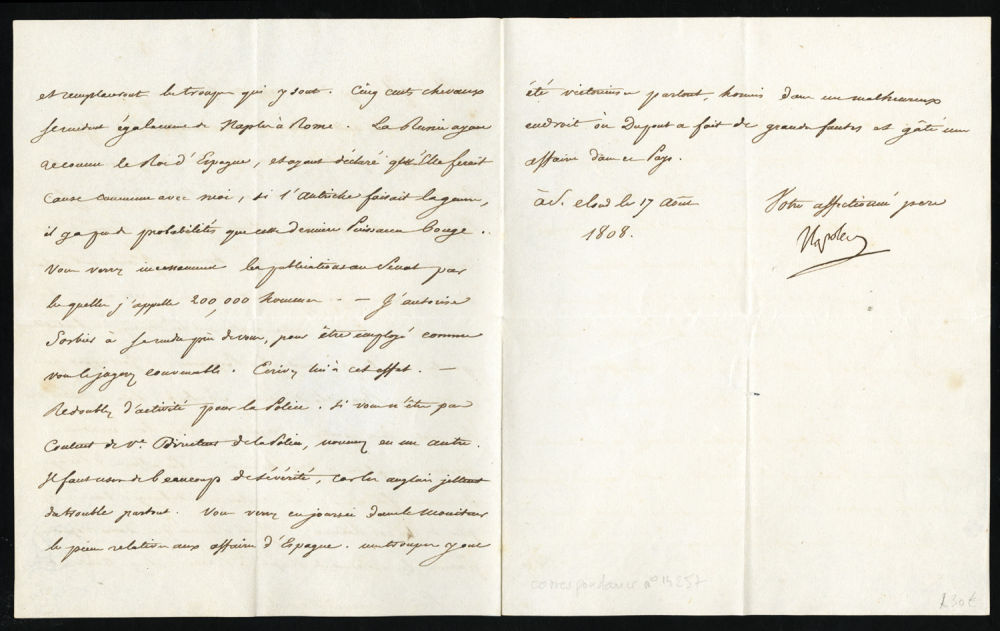 et remplaceront les troupes qui y sont. Cinq cents chevaux
se rendent également de Naples à Rome. La Russie ayant
reconnu le Roi d'Espagne, et ayant déclaré qu'Elle ferait
cause commune avec moi, si l'Autriche faisait la guerre,
il y a peu de probabilités que cette dernière Puissance bouge.
Vous verrez incessamment les publications au Sénat par
lesquelles j'appelle 200,000 hommes. — J'autorise
Sorbier à se rendre près de vous, pour être employé comme
vous le jugerez convenable. Ecrivez lui à cet effet. —
Redoublez d'activité pour la Police. Si vous n'êtes pas
content de Ve. Directeur de la Police, nommez en un autre.
Il faut user de beaucoup de sévérité, car les anglais jettent
du trouble partout. Vous verrez ces jours-ci dans le Moniteur
les pièces relatives aux affaires d'Espagne. mes troupes y ont
été victorieuses partout, hormis dans un malheureux
endroit où Dupont a fait de grandes fautes et gâté mes
affaires dans ce Pays.
à St. Cloud le 17 Août
1808.
Votre affectionné père
Napoleon
correspondance n° 14257